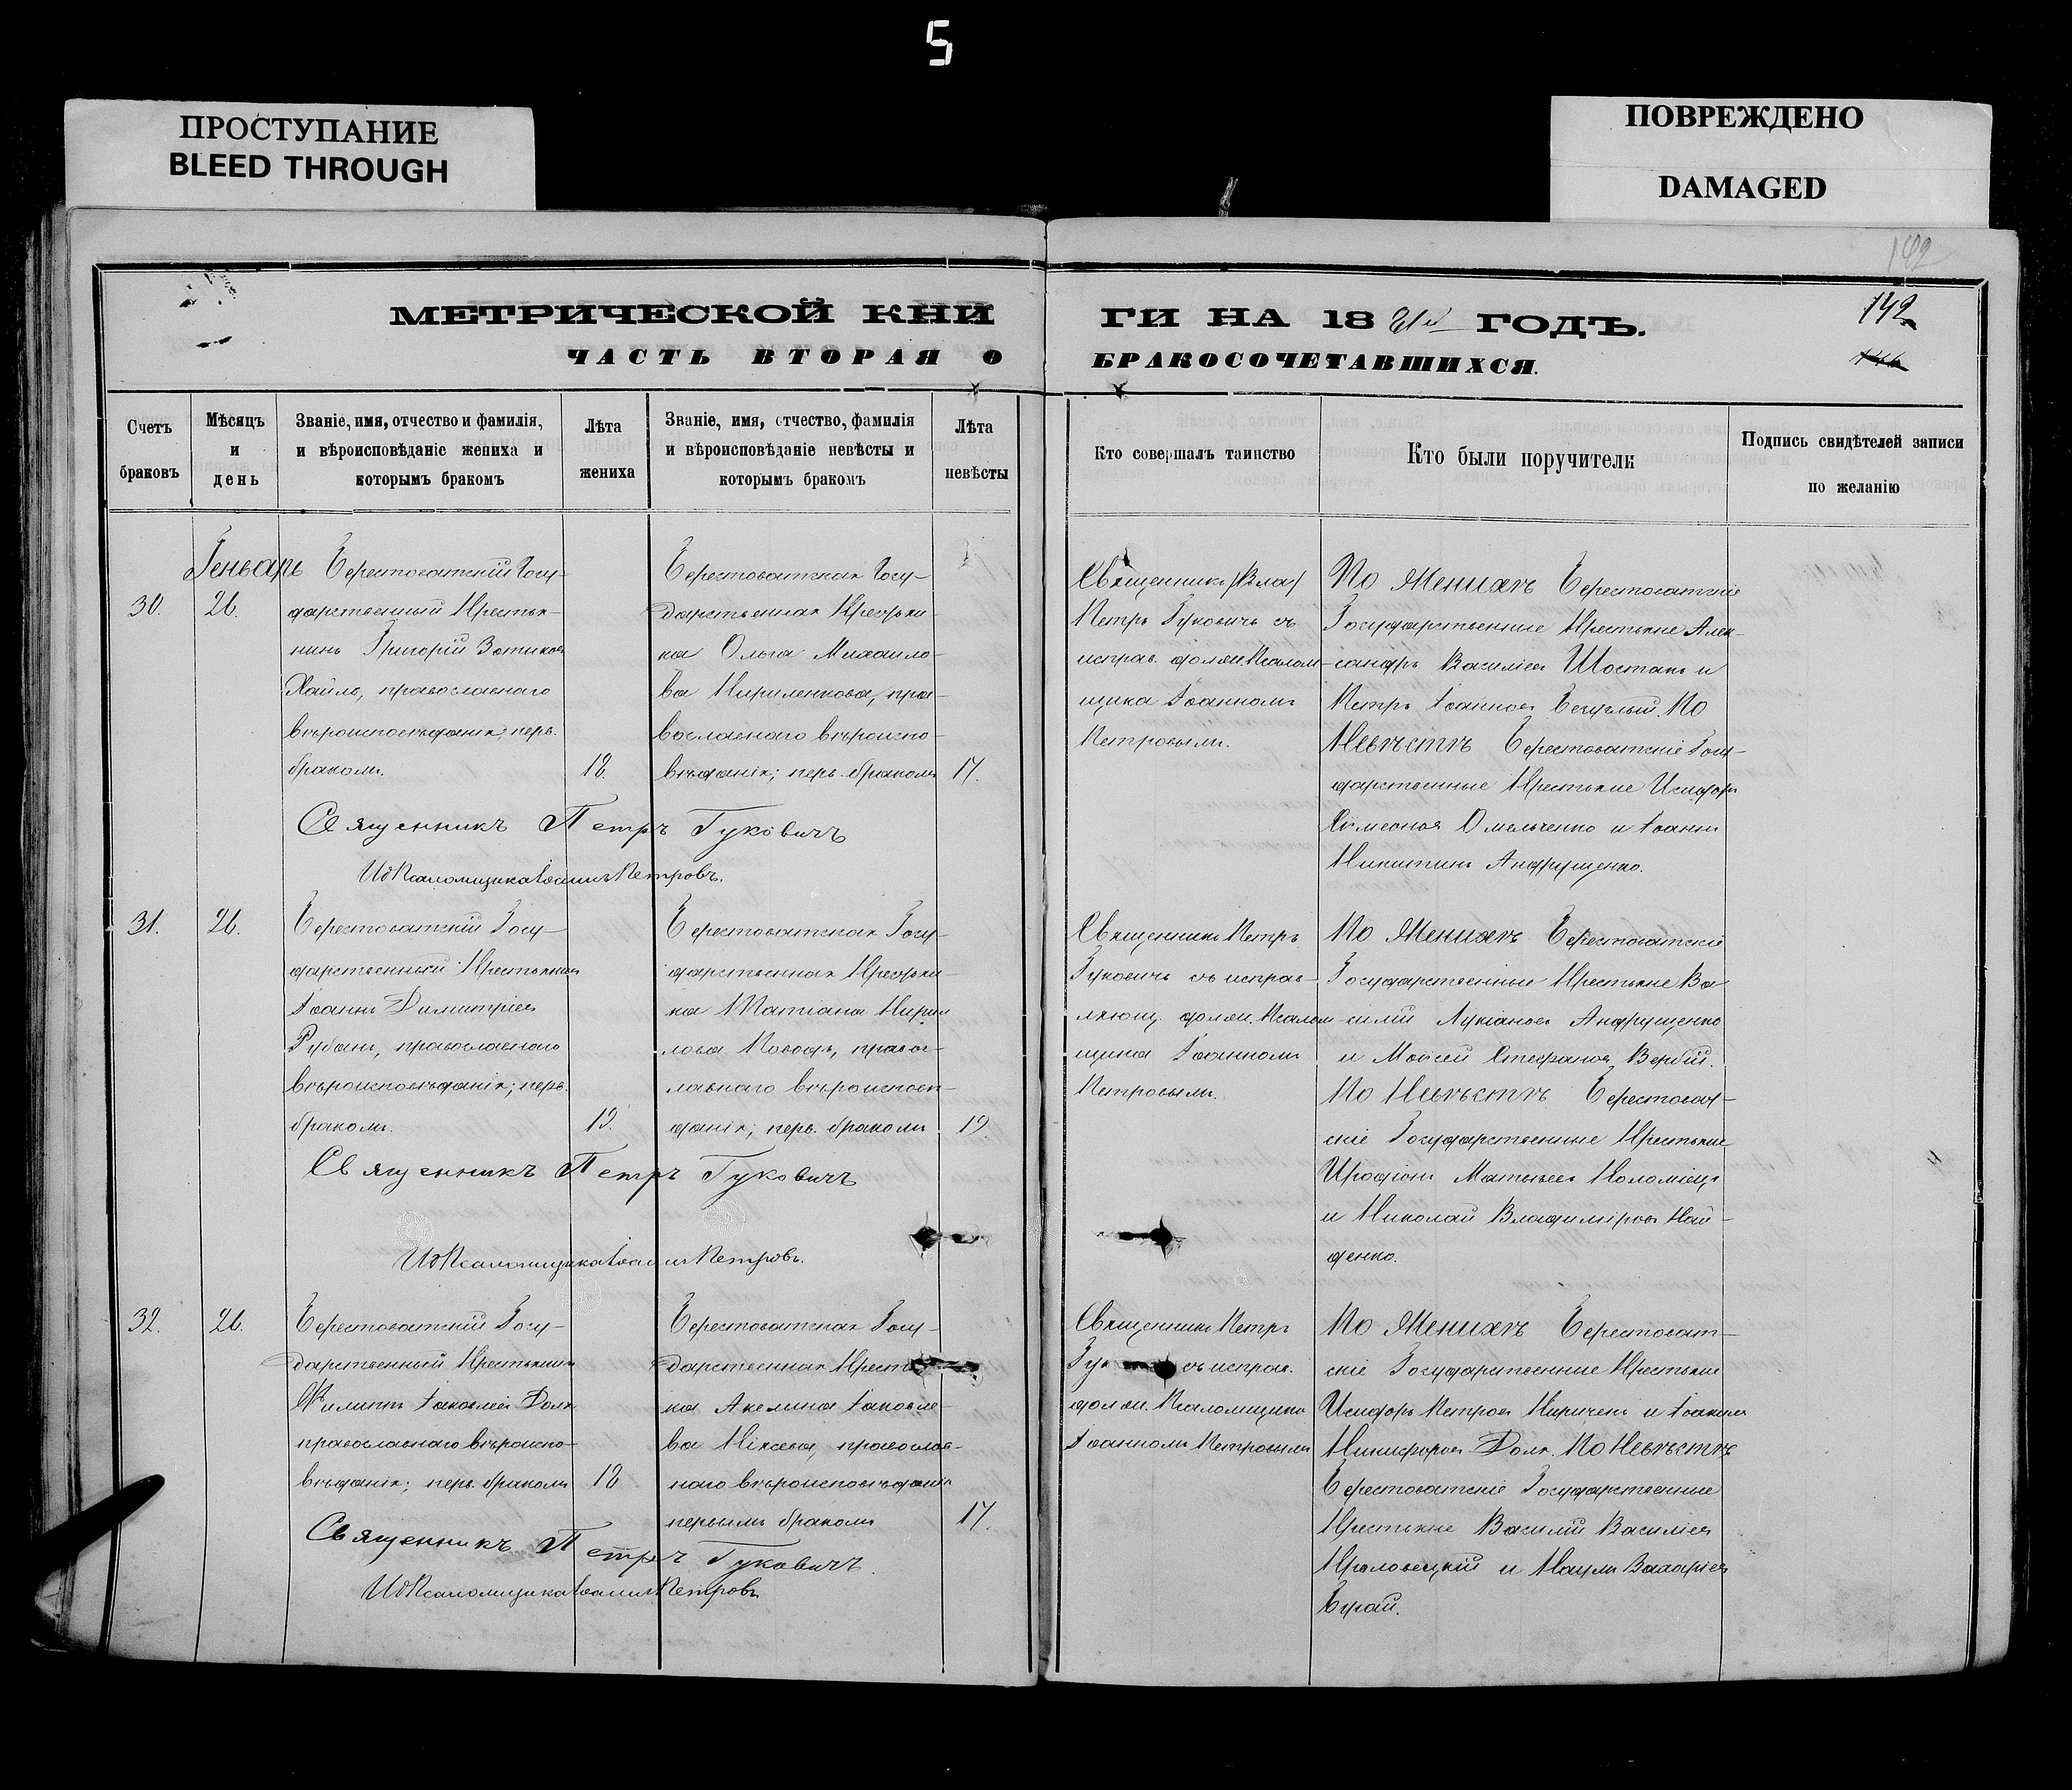 5
ПРОСТУПАНИЕ
BLEED THROUGH
ПОВРЕЖДЕНО
DAMAGED
142
МЕТРИЧЕСКОЙ КНИ
ГИ НА 18 ГОДЪ.
ЧАСТЬ ВТОРАЯ О
БРАКОСОЧЕТАВШИХСЯ.
Счетъ браковъ
Мѣсяцъ и день
Званіе, имя, отчество и фамилія, и вѣроисповѣданіе жениха и которымъ бракомъ
Лѣта жениха
Званіе, имя, отчество, фамилія и вѣроисповѣданіе невѣсты и которымъ бракомъ
Лѣта невѣсты
Кто совершалъ таинство
Кто были поручители
Подпись свидѣтелей записи по желанію
Генварь
30.
26.
Берестоватскій Госу-
дарственный Крестья-
нинъ Григорій Зотиковъ
Хайло, православнаго
вѣроисповѣданія, перв.
бракомъ.
18.
Берестоватская Госу-
дарственная Крестьян-
ка Ольга Михайло-
ва Кириленкова, пра-
вославнаго вѣроиспо-
вѣданія; перв. бракомъ
17.
Священникъ
Петръ Гуковичъ съ
исправ. должн. Псалом-
щика Іоанномъ
Петровымъ.
По Женихѣ Берестоватскіе
Государственные Крестьяне Алек-
сандръ Василіевъ Шостакъ и
Петръ Іоанновъ По
Невѣстѣ Берестоватскіе Госу-
дарственные Крестьяне Исидоръ
Сімеоновъ Омельченко и Іоаннъ
Никитинъ Андрущенко.
Священникъ Петръ Гуковичъ
И д Псаломщика Іоаннъ Петровъ.
31.
26.
Берестоватскій Госу-
дарственный Крестьянинъ
Іоаннъ Димитріевъ
Рубанъ, православнаго
вѣроисповѣданія; перв.
бракомъ.
19.
Берестоватская Госу-
дарственная Крестьян-
ка Татіана Кирил
лова правос-
лавнаго вѣроисповѣ-
данія; перв. бракомъ
19.
Священникъ Петръ
Гуковичъ съ исправ-
ляющ. должн. Псалом-
щика Іоанномъ
Петровымъ.
По Женихѣ Берестоватскіе
Государственные Крестьяне Ва-
силій Лукіановъ Андрущенко
и Моѵсей Стефановъ Вербій.
По Невѣстѣ Берестоват-
скіе Государственные Крестьяне
Иродіонъ Матвѣевъ Коломіецъ
и Николай Владиміровъ Най-
денко.
Священникъ Петръ Гуковичъ
И д Псаломщика Іоаннъ Петровъ.
32.
26.
Берестоватскій Госу-
дарственный Крестьянинъ
Филиппъ Іаковлевъ Доля
православнаго вѣроиспо-
вѣданія; перв. бракомъ
18
Берестоватская Госу-
дарственная Крест
ка Акелина Іаковле-
ва православ-
наго вѣроисповѣданія
первымъ бракомъ
17.
Священникъ Петръ
Гук съ исправ.
должн. Псаломщика
Іоанномъ Петровымъ
По Женихѣ Берестоват-
скіе Государственные Крестьяне
Исидоръ Петровъ Киричекъ и Іоакимъ
Никифоровъ Доля. По Невѣстѣ
Берестоватскіе Государственные
Крестьяне Василій Василіевъ
и Наумъ
Бурай.
Священникъ Петръ Гуковичъ.
И д Псаломщика Іоаннъ Петровъ